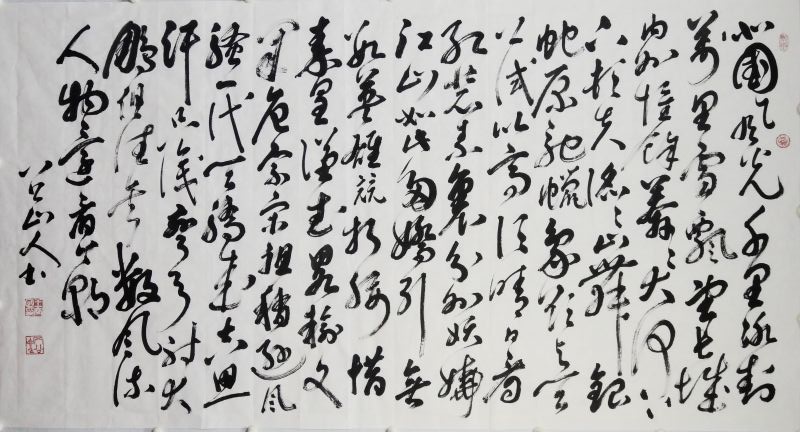 北國风光千里冰封
萬里雪飘望长城
内外惟馀莽莽大河上
下顿失滔滔山舞银
蛇原驰蜡象欲与天
公试比高须晴日看
红装素裹分外妖娆
江山如此多娇引无
数英雄竞折腰惜
秦皇汉武略输文
采唐宗宋祖稍逊风
骚一代天骄成吉思
汗只识弯弓射大
鵰俱往矣数风流
人物还看今朝
八公山人书